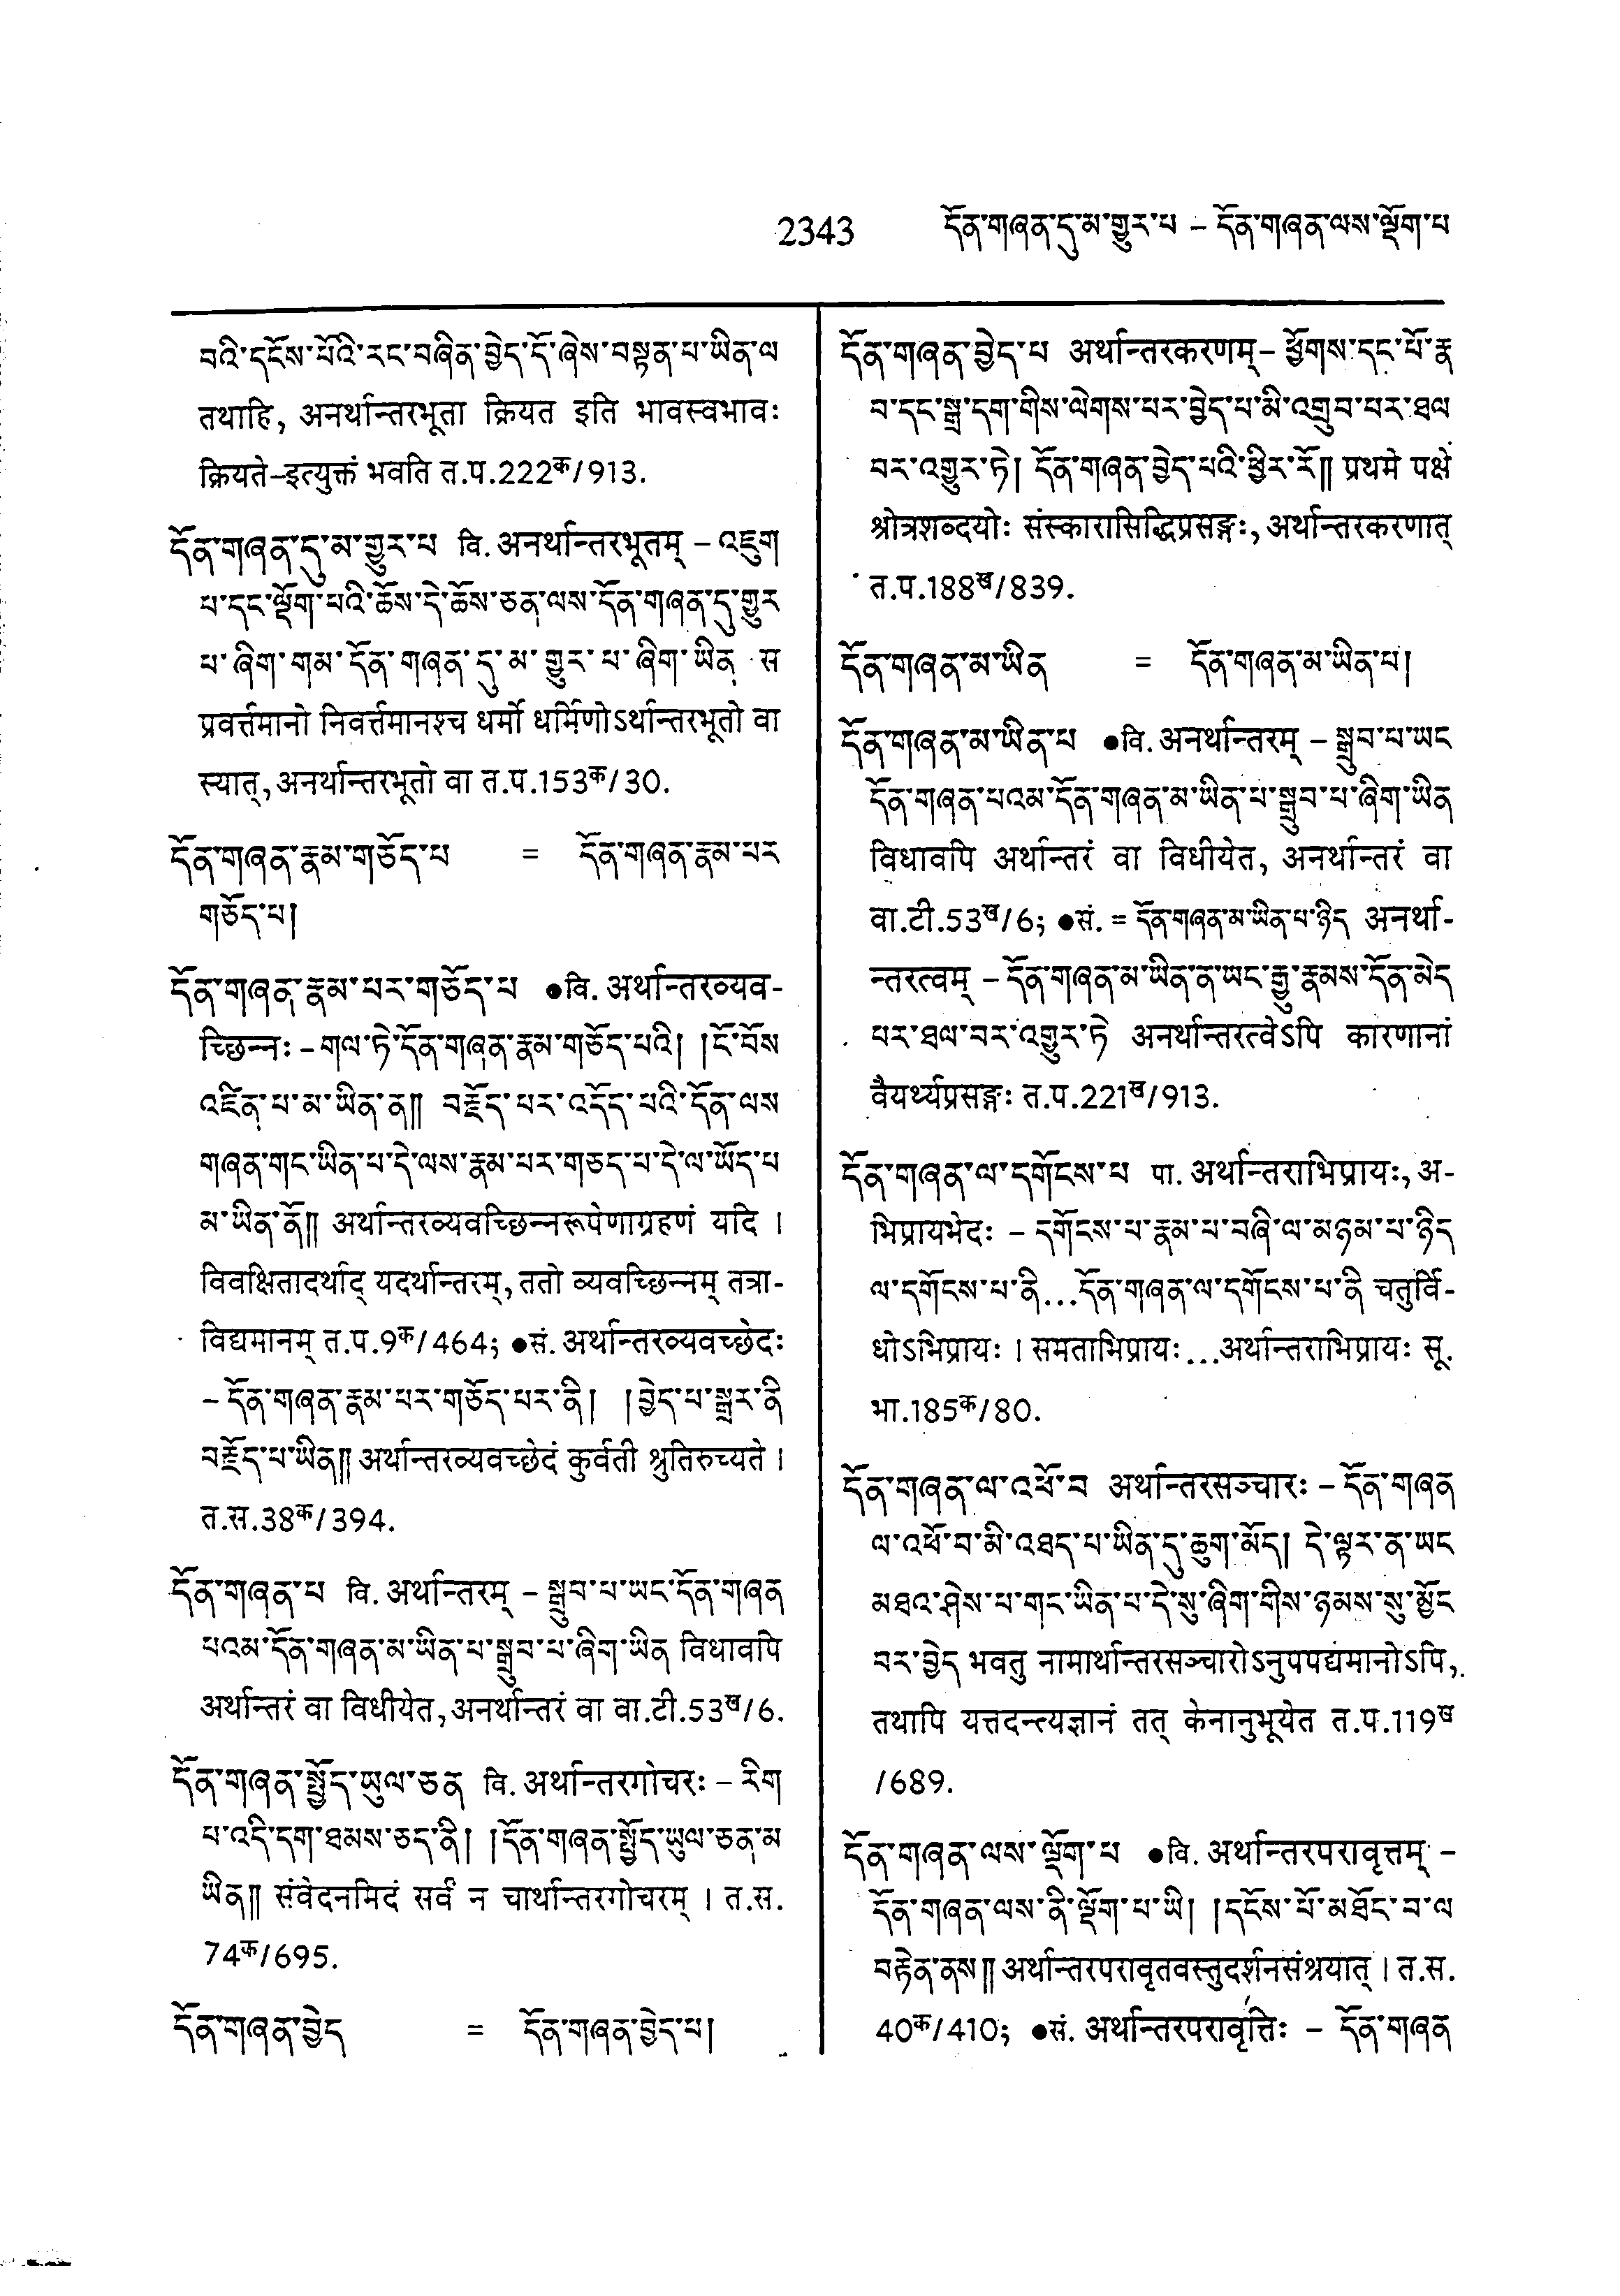 2343 དོན་གཞན་དུ་མ་གྱུར་པ – དོན་གཞན་ལས་ལྡོག་པ
བའི་དངོས་པོའི་རང་བཞིན་བྱེད་དོ་ཞེས་བསྟན་པ་ཡིན་ལ
तथाहि, अनर्थान्तरभूता क्रियत इति भावस्वभावः
क्रियते-इत्युक्तं भवति त.प.222क/913.
དོན་གཞན་དུ་མ་གྱུར་པ वि. अनर्थान्तरभूतम् – འཇུག
པ་དང་ལྡོག་པའི་ཆོས་དེ་ཆོས་ཅན་ལས་དོན་གཞན་དུ་གྱུར
པ་ཞིག་གམ་དོན་གཞན་དུ་མ་གྱུར་པ་ཞིག་ཡིན स
प्रवर्त्तमानो निवर्त्तमानश्च धर्मो धर्मिणोऽर्थान्तरभूतो वा
स्यात्, अनर्थान्तरभूतो वा त.प.153क/30.
དོན་གཞན་རྣམ་གཅོད་པ = དོན་གཞན་རྣམ་པར
གཅོད་པ།
དོན་གཞན་རྣམ་པར་གཅོད་པ ●वि. अर्थान्तरव्यव-
च्छिन्नः – གལ་ཏེ་དོན་གཞན་རྣམ་གཅོད་པའི། །ངོ་བོས
འཛིན་པ་མ་ཡིན་ན།། བརྗོད་པར་འདོད་པའི་དོན་ལས
གཞན་གང་ཡིན་པ་དེ་ལས་རྣམ་པར་གཅད་པ་དེ་ལ་ཡོད་པ
མ་ཡིན་ནོ།། अर्थान्तरव्यवच्छिन्नरूपेणाग्रहणं यदि ।
विवक्षितादर्थाद् यदर्थान्तरम्, ततो व्यवच्छिन्नम् तत्रा-
विद्यमानम् त.प.9क/464; ●सं. अर्थान्तरव्यवच्छेदः
– དོན་གཞན་རྣམ་པར་གཅོད་པར་ནི། །བྱེད་པ་སྒྲར་ནི
བརྗོད་པ་ཡིན།། अर्थान्तरव्यवच्छेदं कुर्वती श्रुतिरुच्यते ।
त.स.38क/394.
དོན་གཞན་པ वि. अर्थान्तरम् – སྒྲུབ་པ་ཡང་དོན་གཞན
པའམ་དོན་གཞན་མ་ཡིན་པ་སྒྲུབ་པ་ཞིག་ཡིན विधावपि
अर्थान्तरं वा विधीयेत, अनर्थान्तरं वा वा.टी.53ख/6.
དོན་གཞན་སྤྱོད་ཡུལ་ཅན वि. अर्थान्तरगोचरः – རིག
པ་འདི་དག་ཐམས་ཅད་ནི། །དོན་གཞན་སྤྱོད་ཡུལ་ཅན་མ
ཡིན།། संवेदनमिदं सर्वं न चार्थान्तरगोचरम् । त.स.
74क/695.
དོན་གཞན་བྱེད = དོན་གཞན་བྱེད་པ།
དོན་གཞན་བྱེད་པ अर्थान्तरकरणम् – ཕྱོགས་དང་པོ་རྣ
བ་དང་སྒྲ་དག་གིས་ལེགས་པར་བྱེད་པ་མི་འགྲུབ་པར་ཐལ
བར་འགྱུར་ཏེ། དོན་གཞན་བྱེད་པའི་ཕྱིར་རོ།། प्रथमे पक्षे
श्रोत्रशब्दयोः संस्कारासिद्धिप्रसङ्गः, अर्थान्तरकरणात्
त.प.188ख/839.
དོན་གཞན་མ་ཡིན = དོན་གཞན་མ་ཡིན་པ།
དོན་གཞན་མ་ཡིན་པ ●वि. अनर्थान्तरम् – སྒྲུབ་པ་ཡང
དོན་གཞན་པའམ་དོན་གཞན་མ་ཡིན་པ་སྒྲུབ་པ་ཞིག་ཡིན
विधावपि अर्थान्तरं वा विधीयेत, अनर्थान्तरं वा
वा.टी.53ख/6; ●सं. = དོན་གཞན་མ་ཡིན་པ་ཉིད अनर्था-
न्तरत्वम् – དོན་གཞན་མ་ཡིན་ན་ཡང་རྒྱུ་རྣམས་དོན་མེད
པར་ཐལ་བར་འགྱུར་ཏེ अनर्थान्तरत्वेऽपि कारणानां
वैयर्थ्यप्रसङ्गः त.प.221ख/913.
དོན་གཞན་ལ་དགོངས་པ पा. अर्थान्तराभिप्रायः, अ-
भिप्रायभेदः – དགོངས་པ་རྣམ་པ་བཞི་ལ་མཉམ་པ་ཉིད
ལ་དགོངས་པ་ནི...དོན་གཞན་ལ་དགོངས་པ་ནི चतुर्वि-
धोऽभिप्रायः । समताभिप्रायः...अर्थान्तराभिप्रायः सू.
भा.185क/80.
དོན་གཞན་ལ་འཕོ་བ अर्थान्तरसञ्चारः – དོན་གཞན
ལ་འཕོ་བ་མི་འཐད་པ་ཡིན་དུ་ཆུག་མོད། དེ་ལྟར་ན་ཡང
མཐའ་ཤེས་པ་གང་ཡིན་པ་དེ་སུ་ཞིག་གིས་ཉམས་སུ་མྱོང
བར་བྱེད भवतु नामार्थान्तरसञ्चारोऽनुपपद्यमानोऽपि,
तथापि यत्तदन्त्यज्ञानं तत् केनानुभूयेत त.प.119ख
/689.
དོན་གཞན་ལས་ལྡོག་པ ●वि. अर्थान्तरपरावृत्तम् –
དོན་གཞན་ལས་ནི་ལྡོག་པ་ཡི། །དངོས་པོ་མཐོང་བ་ལ
བརྟེན་ནས།། अर्थान्तरपरावृतवस्तुदर्शनसंश्रयात् । त.स.
40क/410; ●सं. अर्थान्तरपरावृत्तिः – དོན་གཞན